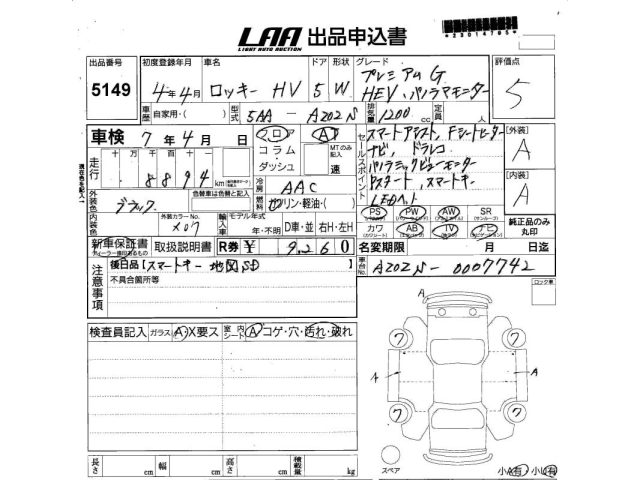 LAA 出品申込書
LIGHT AUTO AUCTION
22014795
出品番号 初度登録年月 車名 ドア 形状 グレード 評価点
5149 4年4月 ロッキー HV 5 W プレミアム G
HEV、パノラマモニター
5
車歴 自家用・( ) 型式 5AA - A202S 排気量 1200 cc 定員 人
車検 7年4月 日 フロア A
コラム MTのみ記入
ダッシュ 速
セールスポイント
スマートアシスト、Fシートヒーター
ナビ、ドラレコ
パノラミックビューモニター
Pスタート、スマートキー
LEDヘッド
[外装]
A
[内装]
A
走行 十 万 千 百 十 一
8894 km
現在色を記入
外装色 ブラック
色替車は色替と記入
冷房 AAC
燃料 ガソリン・軽油・( )
内装色
外装カラーNo.
X07
輸入車 モデル年式
年・不明 D車・並 右H・左H
PS PW AW SR
カワ AB TV ナビ
純正品のみ丸印
新車保証書 取扱説明書 R券 ¥ 9,260 名変期限 月 日迄
ディーラー捺印のあるもの
注意事項 後日品 [スマートキー 地図SD ]
不具合箇所等
車台No. A202S - 0007742
ロック車
検査員記入 ガラス A・X要ス 室内シート A コゲ・穴・汚れ・破れ
A
7 7
A A
7 7
スペア
小A有 小U有
長さ cm 幅 cm 高さ cm 積載量 kg